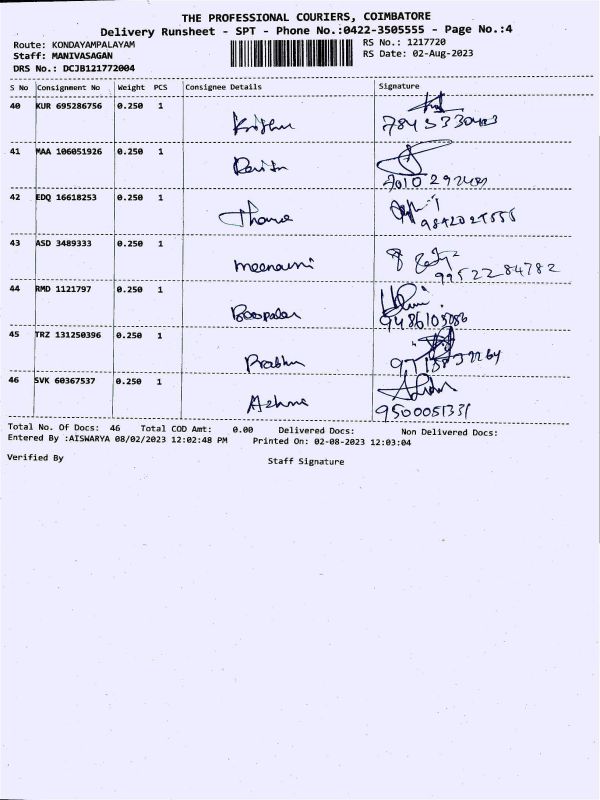 THE PROFESSIONAL COURIERS, COIMBATORE
Delivery Runsheet - SPT - Phone No.:0422-3505555 - Page No.:4
Route: KONDAYAMPALAYAM RS No.: 1217720
Staff: MANIVASAGAN RS Date: 02-Aug-2023
DRS No.: DCJB121772004
S No Consignment No Weight PCS Consignee Details Signature
40 KUR 695286756 0.250 1
41 MAA 106051926 0.250 1
42 EDQ 16618253 0.250 1
43 ASD 3489333 0.250 1
99522 84782
44 RMD 1121797 0.250 1
45 TRZ 131250396 0.250 1
Prabhu
46 SVK 60367537 0.250 1
9500051331
Total No. Of Docs: 46 Total COD Amt: 0.00 Delivered Docs: Non Delivered Docs:
Entered By :AISWARYA 08/02/2023 12:02:48 PM Printed On: 02-08-2023 12:03:04
Verified By Staff Signature